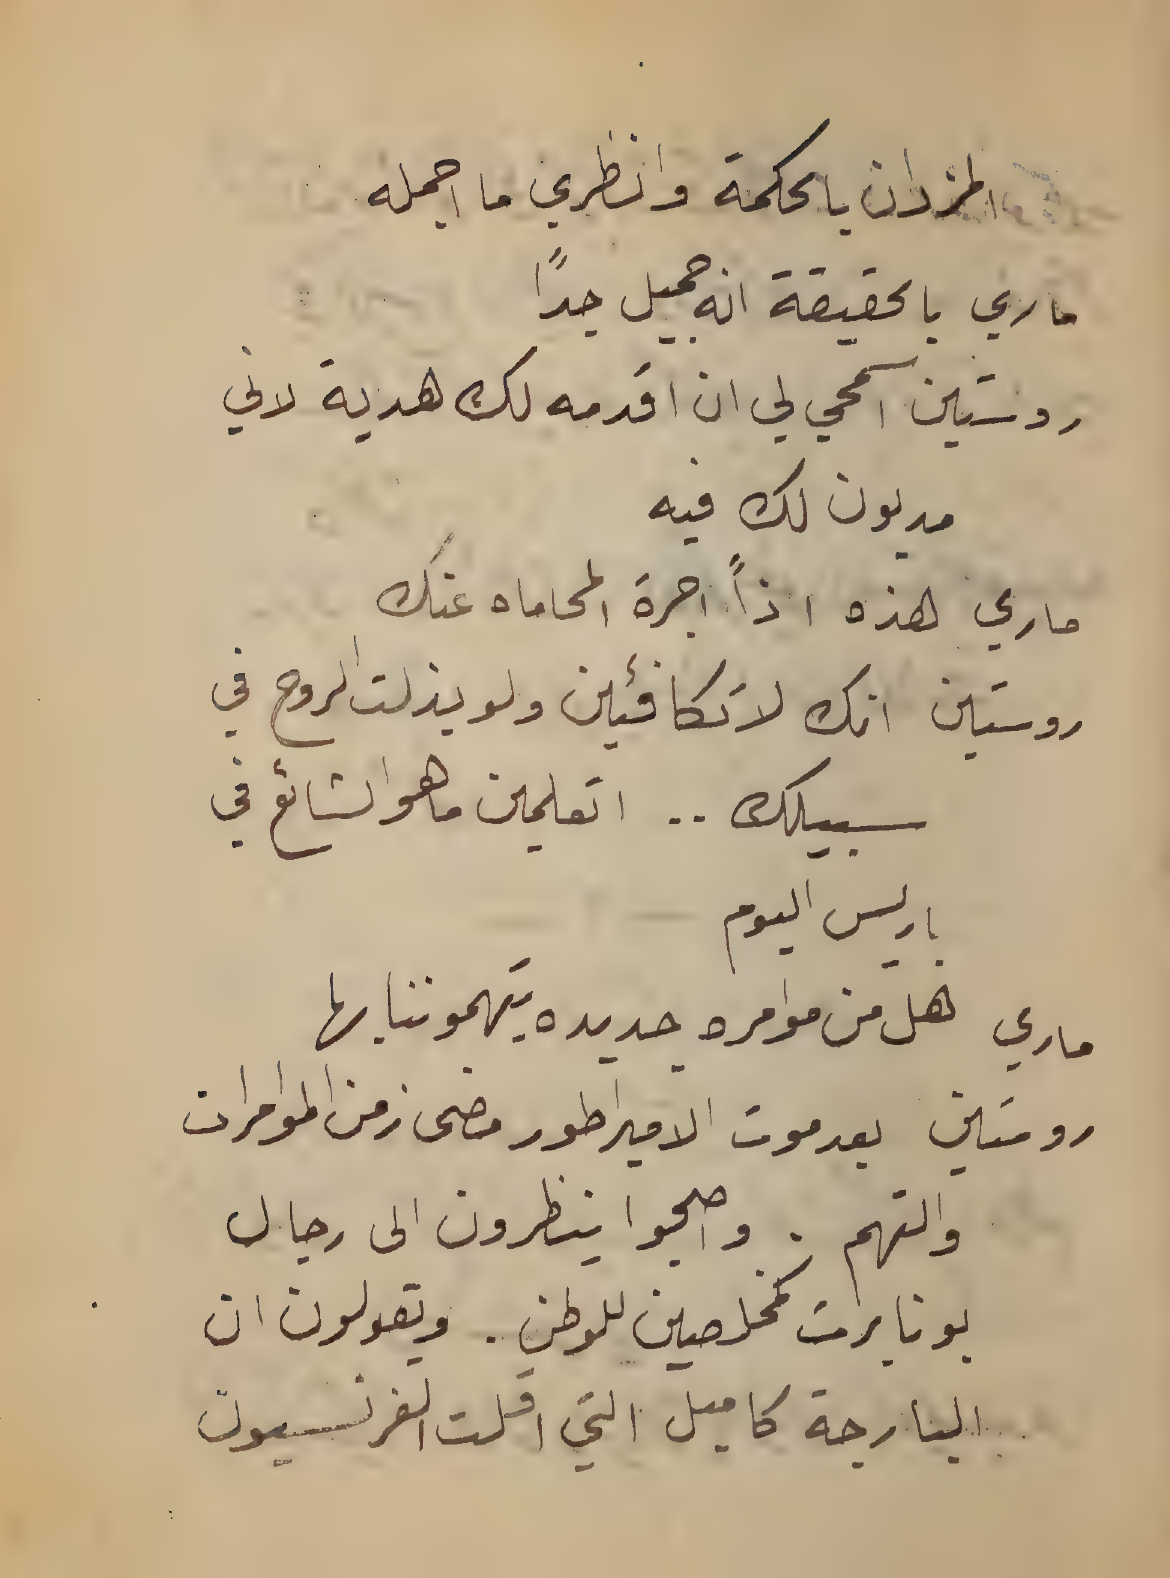 المزدان بالحكمة وانظري ما اجمله
ماري بالحقيقة انه جميل جداً
روستين اسمحي لي ان اقدمه لك هدية لاني
مديون لك فيه
ماري هذه اذاً اجرة المحاماه عنك
روستين انك لا تكافئين ولو بذلت الروح في
سبيلك .. اتعلمين ما هو الشائع في
باريس اليوم
ماري هل من موامره جديده يتهموننا بها
روستين بعد موت الامبراطور مضى زمن الموامرات
والتهم . واصبحوا ينظرون الى رجال
بونابرت كمخلصين للوطن . ويقولون ان
البارجة كاميل التي اقلت الفرنسيون